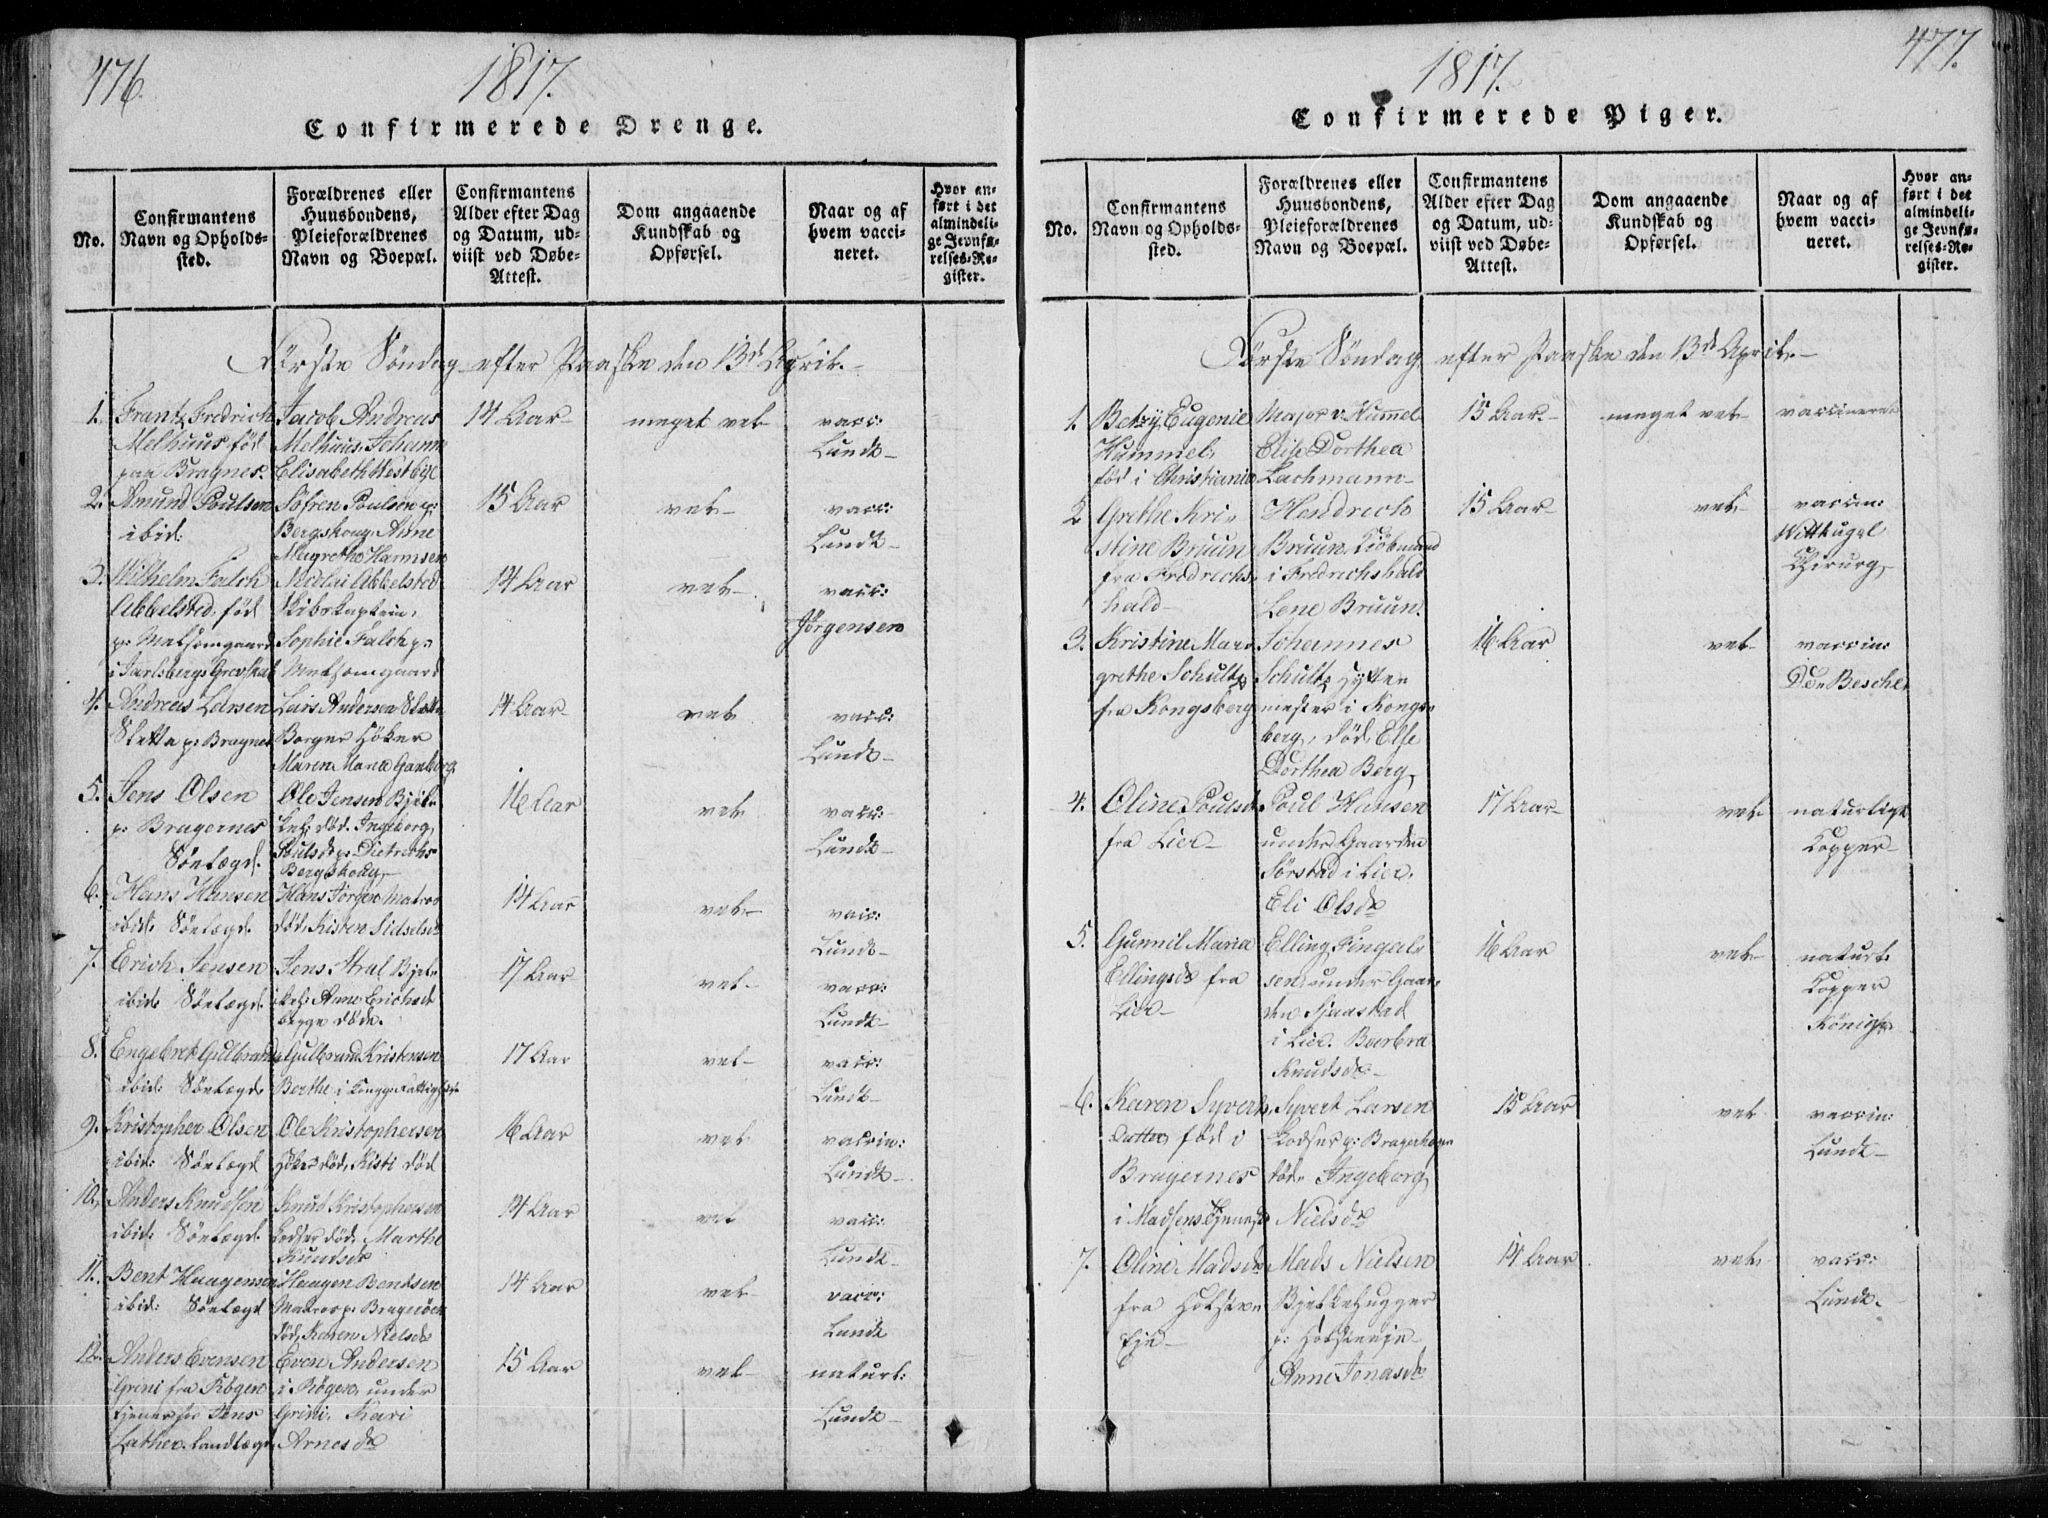 476.
1817.
Confirmerede Drenge.
No.
Confirmantens
Navn og Opholds-
sted.
Forældrenes eller
Huusbondens,
Pleieforældrenes
Navn og Boepæl.
Confirmantens
Alder efter Dag
og Datum, ud-
viist ved Døbe-
Attest.
Dom angaaende
Kundskab og
Opførsel.
Naar og af
hvem vacci-
neret.
Hvor an-
ført i det
almindeli-
ge Jevnfø-
relses-Re-
gister.
Første Søndag efter Paaske den 13de April.
1.
Frantz Fredrich
Melhuus født
paa Bragnes.
Jacob Andreas
Melhuus. Johanne
Elisabeth Hestbye
14 Aar
meget vel
vacc:
Lundt
2.
Amund Poulsen
ibid:
Søfren Poulsen p:
Bergskoug. Anne
Megrethe Harmsen
15 Aar
vel
vacc:
Lundt
3.
Wilhelm Falch
Abbelsted. født
i Jarlsbergs Grevskab
Nicolai Abbelsted
Skibskaptein.
Sophie Falch p:
14 Aar
vel
vacc:
Jørgensen
4.
Andreas Larsen
Sletta p: Bragnes
Lars Andersen Sletta
Borger Høker
Maren Maria
14 Aar
vel
vacc:
Lundt
5.
Jens Olsen
p: Bragernes
Sønlægd.
Ole Jensen
død. Ingeborg
Poulsdr p: Dietrichs
Bergskoug
16 Aar
vel
vacc:
Lundt
6.
Hans Hansen
ibid: Sønlægd.
Hans Jørgen Matros
død, Kisten Sidselsdr
14 Aar
vel
vacc:
Lundt
7.
Erich Jensen
ibid: Sønlægd.
Jens
Anne Erichsdr
begge døde.
17 Aar
vel
vacc:
Lundt
8.
Engebret Gulbrands
ibid: Sønlægd.
Gulbrand Kristensen
Berthe i
17 Aar
vel
vacc:
Lundt
9.
Kristopher Olsen
ibid: Sønlægd
Ole Kristophersen
Høker død, Kisti død
16 Aar
vel
vaccin:
Lundt
10.
Anders Knudsen
ibid: Sønlægd.
Knud Kristophersen
Lodser død. Marthe
Knudsdr
14 Aar
vel
vacc:
Lundt
11.
Bent Haagensen
ibid: Sønlægd
Haagen Bentsen
Matros p: Bragerøen
død, Karen Nielsdr
14 Aar
vel
vacc:
Lundt
12.
Anders Evensen
Grini fra Røgen
tjener for Jens
Lather. Landlægd
Even Andersen
i Røgen, under
Grini. Kari
Arnesdr
15 Aar
vel
naturl:
Lundt
477.
1817.
Confirmerede Piger.
No.
Confirmantens
Navn og Opholds-
sted.
Forældrenes eller
Huusbondens,
Pleieforældrenes
Navn og Boepæl.
Confirmantens
Alder efter Dag
og Datum, ud-
viist ved Døbe-
Attest.
Dom angaaende
Kundskab og
Opførsel.
Naar og af
hvem vacci-
neret.
Hvor an-
ført i det
almindeli-
ge Jevnfø-
relses-Re-
gister.
Første Søndag efter Paaske den 13de April.
1.
Betzy Eugenie
Hummel,
født i Christiania
Major v. Hummel
Elise Dorthea
Lachmann
15 Aar
meget vel
vaccineret
2
Grethe Kri-
stine Bruun
fra Fredrichs-
hald
Hendrich
Bruun. Kiøbmand
i Fredrichshald
Lene Bruun.
15 Aar
vel
vaccin:
Wittkugel
Chirurg
3.
Kristine Mar-
grethe Schultz
fra Kongsberg
Johannes
Schultz Hytte-
mester i Kongs-
berg, død, Else
Dorthea Berg
16 Aar
vel
vaccin:
Dr Beschel
4.
Oline Poulsdr
fra Lier
Poul Hansen
under Gaarden
Sørstad i Lier.
Eli Olsdr
17 Aar
vel
naturlige
Kopper
5.
Gunnil Maria
Ellingsdr fra
Lier
Elling Fingals
sen. under Gaar-
den Sjaastad
i Lier. Barbra
Knudsdr
16 Aar
vel
naturl:
Kopper
König
6.
Karen Syverts
Datter, født i
Bragernes
i Madsens Tjeneste
Syvert Larsen
Lodser p: Bragerhagen
død. Ingeborg
Nielsdr
15 Aar
vel
vaccin:
Lundt
7.
Oline Madsdr
fra Holstens
Eje
Mads Nielsen
Bjelkehugger
p: Holsteneje
Anne Jonasdr
14 Aar
vel
vacc:
Lundt.